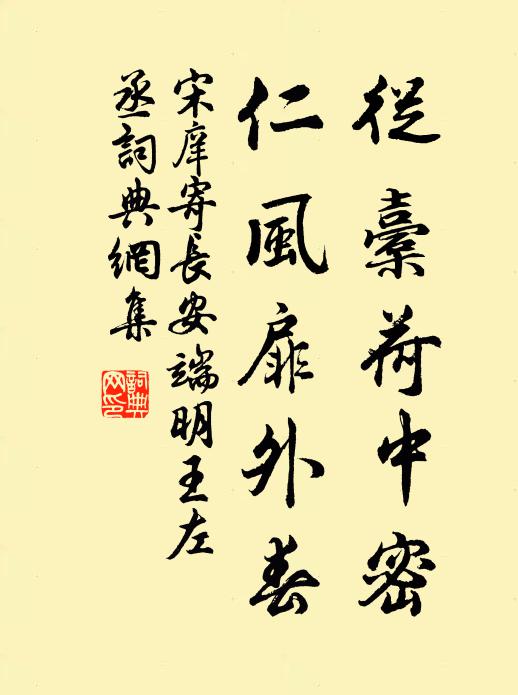 從橐荷中密
仁風扉外春
宋庠寄長安端明王左
丞詞典網集
詞典
网印